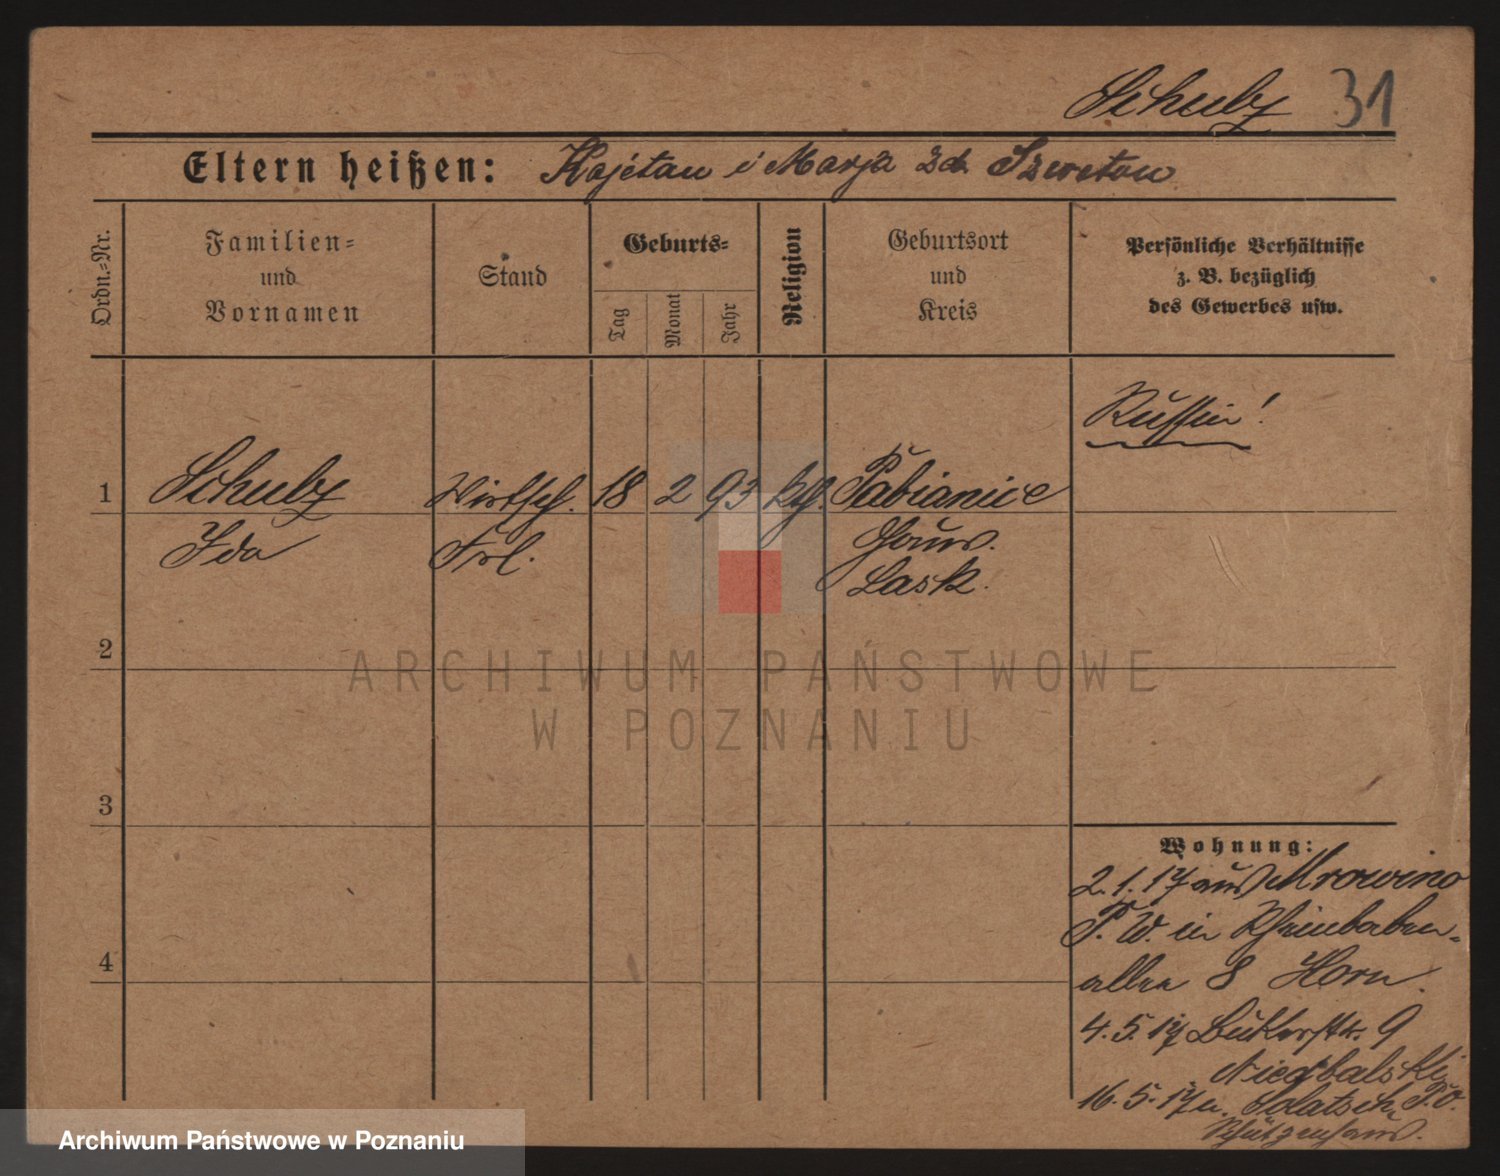 Schulz 31
Eltern heißen: Kajetan i Marja zd. Szwetow
Ordn.=Nr.
Familien=
und
Vornamen
Stand
Geburts=
Tag
Monat
Jahr
Religion
Geburtsort
und
Kreis
Persönliche Verhältnisse
z. B. bezüglich
des Gewerbes usw.
Russin!
1 Schulz Wirtsch. 18 2 93 kth. Pabianice
Ida Frl. Gouv.
Lask.
2
3
4
Wohnung:
2.1.17 aus Mrowino
P. W. in Rheinbaben-
allee 8 Horn.
4.5.17 Bukerstr. 9
Niegbalski
16.5.17 n. Solatsch, P.O.
Schützenhaus.
ARCHIWUM PAŃSTWOWE
W POZNANIU
Archiwum Państwowe w Poznaniu